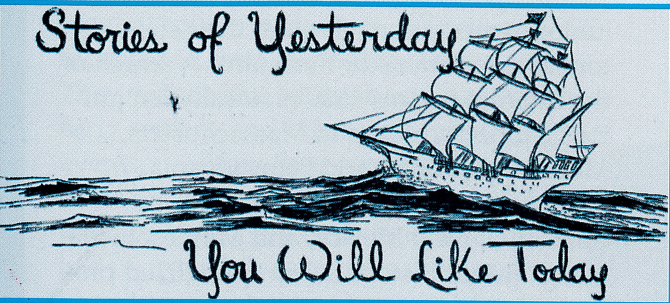 Stories of Yesterday
You Will Like Today